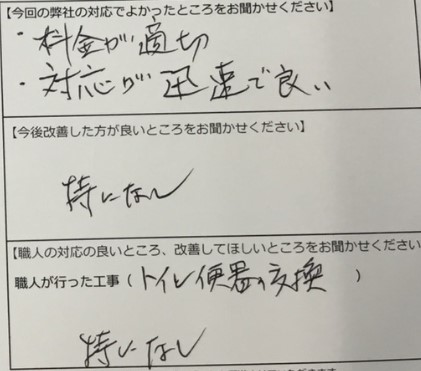 【今回の弊社の対応でよかったところをお聞かせください】
・料金が適切
・対応が迅速で良い
【今後改善した方が良いところをお聞かせください】
特になし
【職人の対応の良いところ、改善してほしいところをお聞かせください
職人が行った工事（トイレ便器の交換）
特になし